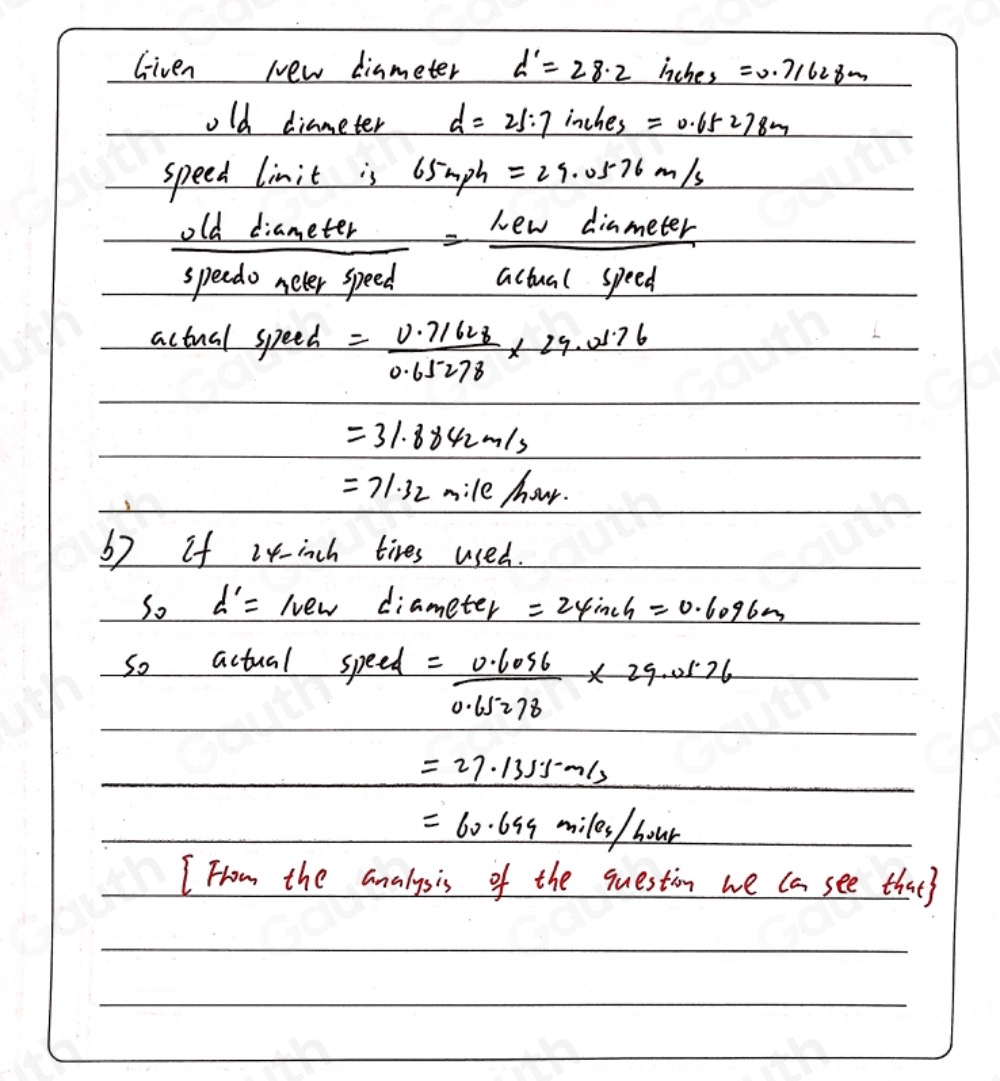 Given New diameter d' = 28.2 inches = 0.71628m
old diameter d = 25.7 inches = 0.65278m
speed limit is 65mph = 29.0576 m/s
old diameter / speedo meter speed = New diameter / actual speed
actual speed = 0.71628 / 0.65278 × 29.0576
= 31.8842 m/s
= 71.32 mile/hour.
b) If 24-inch tires used.
So d' = New diameter = 24inch = 0.6096m
so actual speed = 0.6096 / 0.65278 × 29.0576
= 27.1355 m/s
= 60.699 miles/hour
[From the analysis of the question we can see that}
Gauth